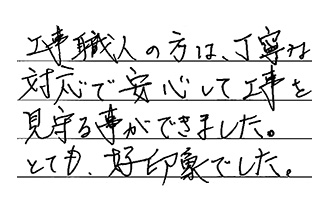 工事職人の方は、丁寧な
対応で安心して工事を
見守る事ができました。
とても、好印象でした。